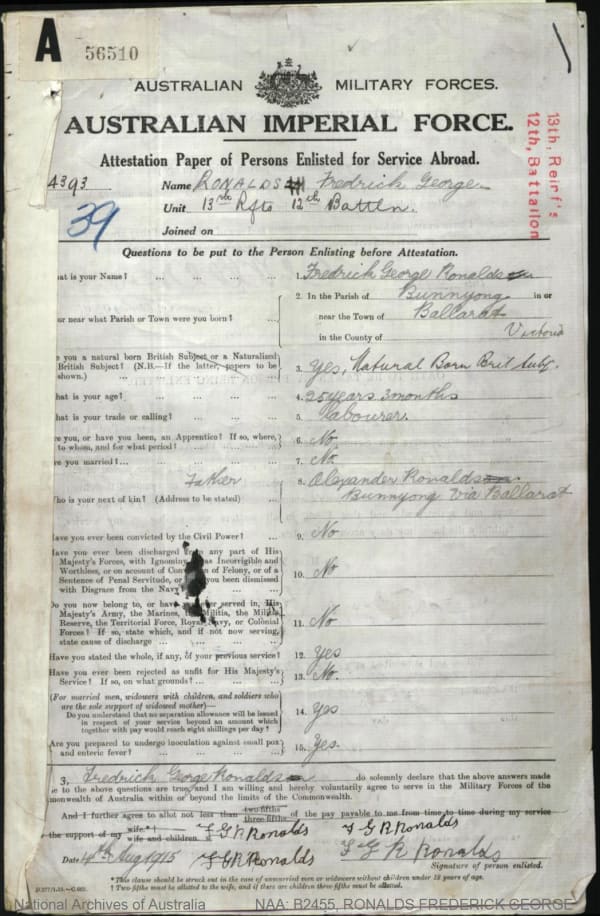 A 56510
AUSTRALIAN MILITARY FORCES.
AUSTRALIAN IMPERIAL FORCE.
Attestation Paper of Persons Enlisted for Service Abroad.
13th, Reinf's
12th, Battalion
4393
Name RONALDS Fredrick George
39
Unit 13th Rfts 12th Battln.
Joined on
Questions to be put to the Person Enlisting before Attestation.
hat is your Name? ... ... ... ... 1. Fredrick George Ronalds
or near what Parish or Town were you born? ...
2. In the Parish of Bunnyong in or
near the Town of Ballarat
in the County of Victoria
e you a natural born British Subject or a Naturalized
British Subject? (N.B.—If the latter, papers to be
shown.) ...
3. Yes, Natural Born Brit Subj.
hat is your age? ... ... ... ... 4. 25 years 3 months
hat is your trade or calling? ... ... ... 5. labourer.
re you, or have you been, an Apprentice? If so, where,
to whom, and for what period? ... ... ...
6. No
re you married? ... ... ... ... 7. No.
Father
ho is your next of kin? (Address to be stated) ...
8. Alexander Ronalds
Bunnyong via Ballarat
ave you ever been convicted by the Civil Power? ... 9. No
ave you ever been discharged any part of His
Majesty's Forces, with Ignominy as Incorrigible and
Worthless, or on account of of Felony, or of a
Sentence of Penal Servitude, or you been dismissed
with Disgrace from the Navy
10. No
Do you now belong to, or have ever served in, His
Majesty's Army, the Marines, Militia, the Militia
Reserve, the Territorial Force, Royal Navy, or Colonial
Forces? If so, state which, and if not now serving,
state cause of discharge ... ...
11. No
Have you stated the whole, if any, of your previous service? 12. Yes
Have you ever been rejected as unfit for His Majesty's
Service? If so, on what grounds? ... ...
13. No.
(For married men, widowers with children, and soldiers who
are the sole support of widowed mother)—
Do you understand that no separation allowance will be issued
in respect of your service beyond an amount which
together with pay would reach eight shillings per day?
14. Yes
Are you prepared to undergo inoculation against small pox
and enteric fever? ... ... ... ...
15. Yes.
3. Fredrick George Ronalds do solemnly declare that the above answers made
e to the above questions are true, and I am willing and hereby voluntarily agree to serve in the Military Forces of the
monwealth of Australia within or beyond the limits of the Commonwealth.
And I further agree to allot not less than two-fifths
three-fifths of the pay payable to me from time to time during my service
the support of my wife.*†
wife and children. F G R Ronalds F G R Ronalds
Date 4th Aug 1915 F G R Ronalds F G R Ronalds
Signature of person enlisted.
*This clause should be struck out in the case of unmarried men or widowers without children under 18 years of age.
† Two fifths must be allotted to the wife, and if there are children three fifths must be allotted.
National Archives of Australia NAA: B2455, RONALDS FREDERICK GEORGE